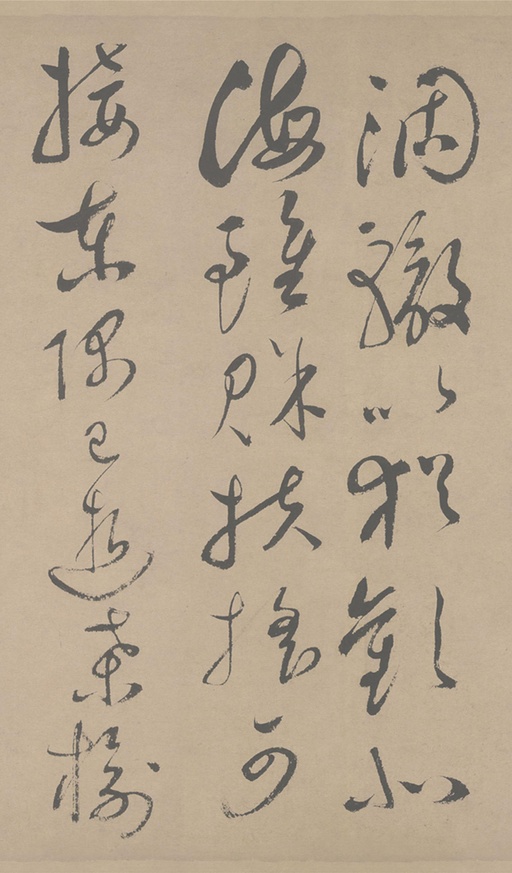 涸轍以猶歡北
海雖賒扶搖可
接東隅已逝桑榆